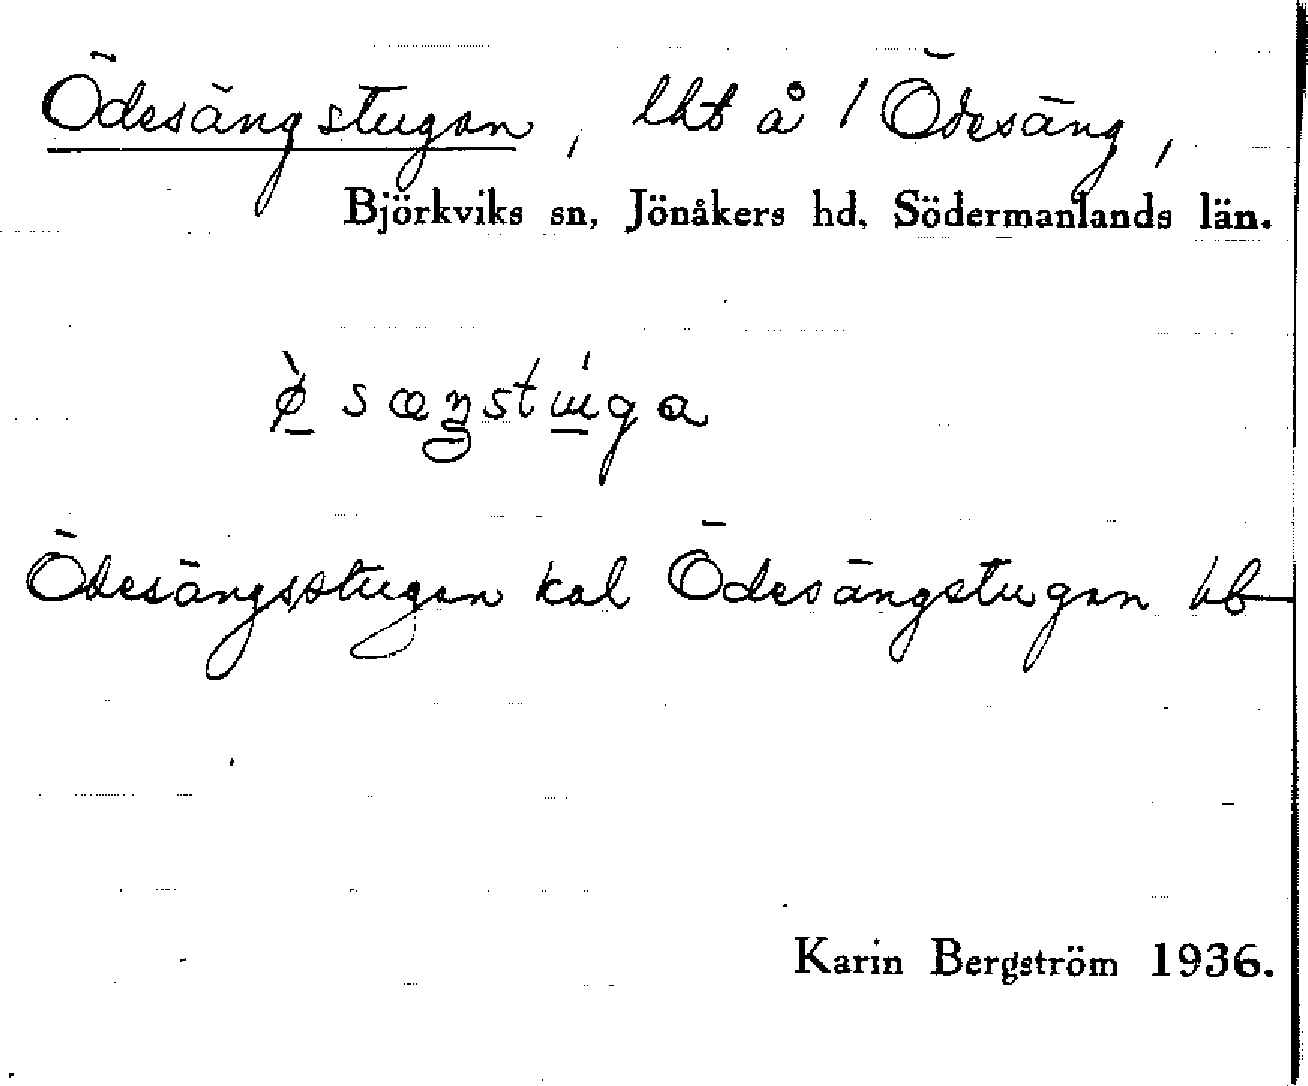 Ödesängstugan, lht å 1 Ödesäng,
Björkviks sn, Jönåkers hd, Södermanlands län.
ø̀sæŋstúga
Ödesängsstugan kal Ödesängstugan hb
Karin Bergström 1936.